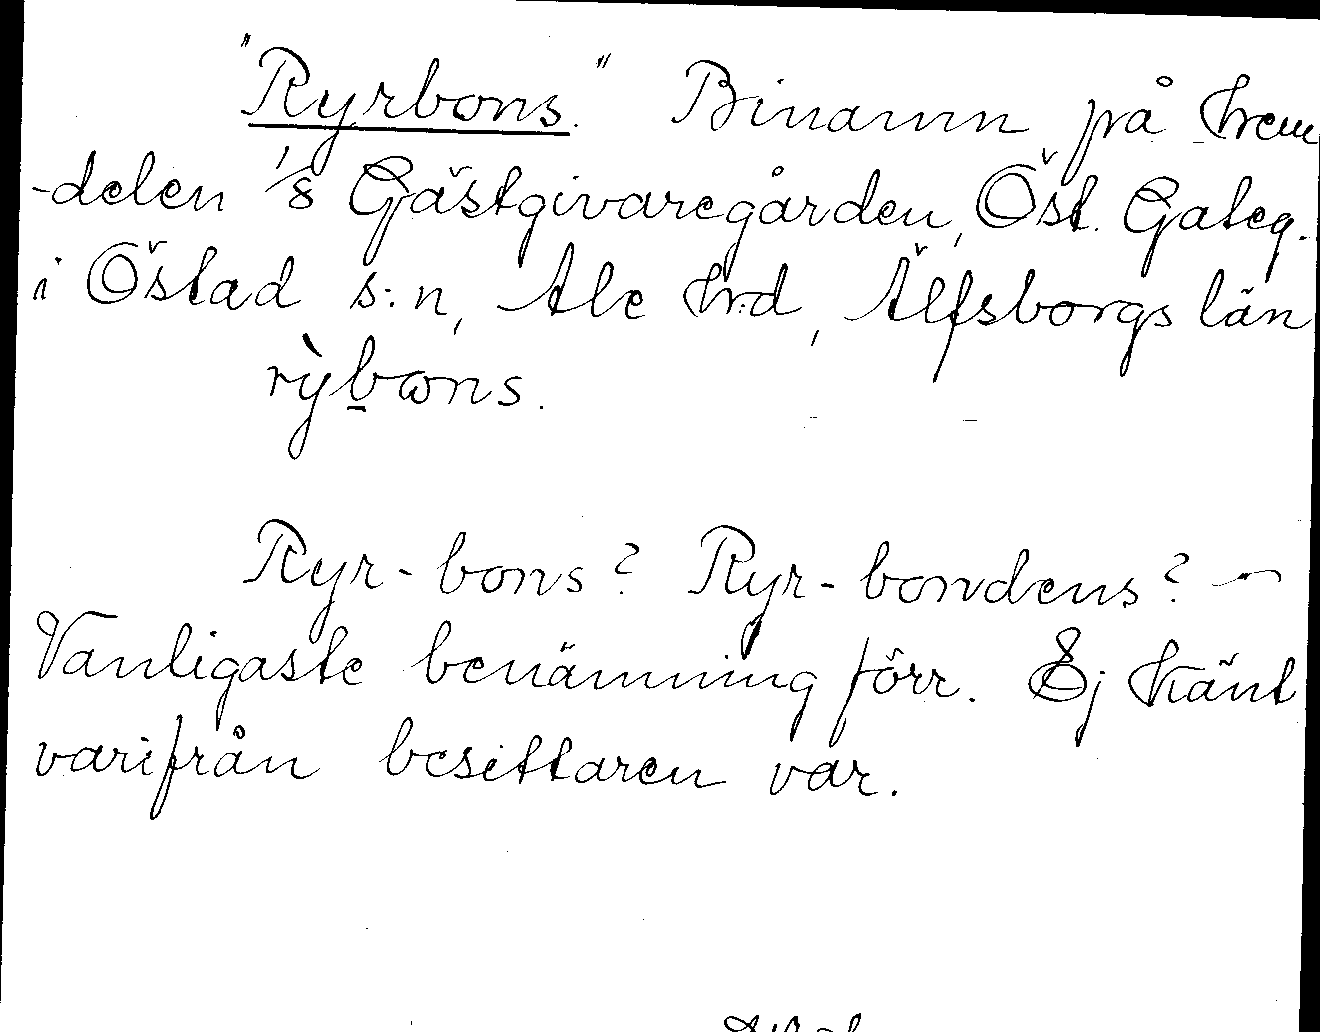 "Ryrbons." Binamn på hem
-delen 1/8 Gästgivaregården, Öst. Gateg.
i Östad s:n, Ale hrd, Älfsborgs län
rỳbωns.
Ryr-bons? Ryr-bondens? —
Vanligaste benämning förr. Ej känt
varifrån besittaren var.